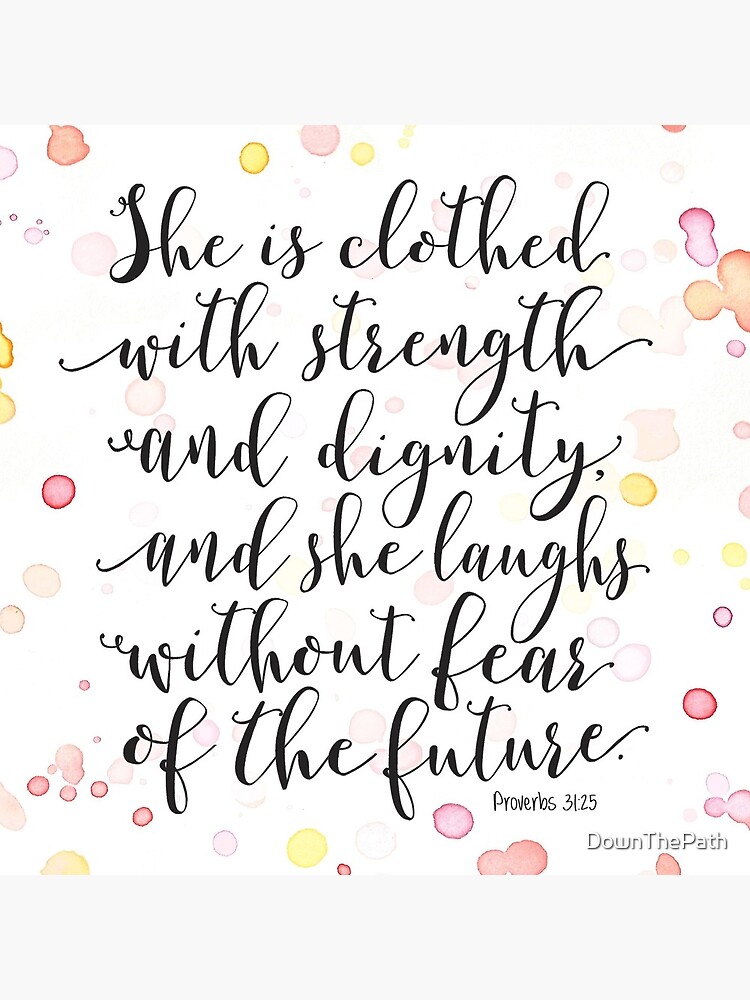 She is clothed
with strength
and dignity,
and she laughs
without fear
of the future.
Proverbs 31:25
DownThePath